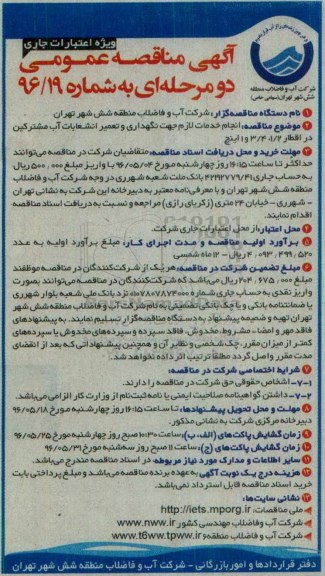 ویژه اعتبارات جاری
آگهی مناقصه عمومی
دو مرحله‌ای به شماره ۹۶/۱۹
شرکت آب و فاضلاب منطقه
شش شهر تهران (سهامی خاص)
۱ نام دستگاه مناقصه‌گزار: شرکت آب و فاضلاب منطقه شش شهر تهران
۲ موضوع مناقصه: انجام خدمات لازم جهت نگهداری و تعمیر انشعابات آب مشترکین
در اقطار ۱/۲، ۳/۴ و ۱ اینچ
۳ مهلت خرید و محل دریافت اسناد مناقصه: متقاضیان شرکت در مناقصه می‌توانند
حداکثر تا ساعت ۱۶:۱۵ روز چهارشنبه مورخ ۹۶/۰۵/۰۴ با واریز مبلغ ۵۰۰,۰۰۰ ریال
به حساب جاری ۴۲۹۲۷۷۹/۴۱ بانک ملت شعبه شهرری در وجه شرکت آب و فاضلاب
منطقه شش شهر تهران و با معرفی‌نامه معتبر به دبیرخانه این شرکت به نشانی تهران
- شهرری - خیابان ۲۴ متری (زکریای رازی) مراجعه و نسبت به دریافت اسناد مناقصه
اقدام نمایند.
۴ محل اعتبار: از محل اعتبارات جاری شرکت.
۵ برآورد اولیه مناقصه و مدت اجرای کار: مبلغ برآورد اولیه به عدد
۴,۰۹۳,۴۹۹,۵۲۰ ریال - ۱۲ ماه شمسی
۶ مبلغ تضمین شرکت در مناقصه: هر یک از شرکت‌کنندگان در مناقصه موظفند
مبلغ ۲۰۴,۶۷۵,۰۰۰ ریال می‌باشد که شرکت‌کنندگان در مناقصه می‌توانند بصورت
واریز نقدی به حساب جاری شماره ۰۱۰۵۷۸۰۷۸۷۴۰۰۰ نزد بانک ملی شعبه بلوار شهرری
یا ضمانتنامه بانکی و یا چک بانکی تضمینی به نام شرکت آب و فاضلاب منطقه شش شهر
تهران تهیه و ضمیمه پیشنهاد به دستگاه مناقصه‌گزار تسلیم نمایند. به پیشنهادهای
فاقد مهر و امضاء، مشروط، مخدوش، فاقد سپرده و سپرده‌های مخدوش یا سپرده‌های
کمتر از میزان مقرر، چک شخصی و نظایر آن و همچنین پیشنهاداتی که بعد از انقضای
مدت مقرر واصل گردد مطلقا ترتیب اثر داده نخواهد شد.
۷ شرایط اختصاصی شرکت در مناقصه:
۷-۱- اشخاص حقوقی حق شرکت در مناقصه را دارند.
۷-۲- داشتن گواهینامه صلاحیت ایمنی یا نامه ثبت‌نام از وزارت کار الزامی می‌باشد.
۸ مهلت و محل تحویل پیشنهادها: تا ساعت ۱۶:۱۵ روز چهارشنبه مورخ ۹۶/۰۵/۱۸
دبیرخانه مرکزی شرکت به نشانی مذکور.
۹ زمان گشایش پاکت‌های (الف، ب): ساعت ۱۰:۳۰ صبح روز چهارشنبه مورخ ۹۶/۰۵/۲۵
۱۰ زمان گشایش پاکت‌های (ج): ساعت ۱۱ صبح روز سه‌شنبه مورخ ۹۶/۰۵/۳۱
۱۱ سایر اطلاعات و مدارک مورد نیاز مربوطه: در اسناد مناقصه مندرج می‌باشد.
۱۲ هزینه درج یک نوبت آگهی به عهده برنده مناقصه می‌باشد و مبلغ پرداختی بابت
خرید اسناد مناقصه قابل استرداد نمی‌باشد.
۱۳ نشانی سایت‌ها:
ملی مناقصات: http://iets.mporg.ir
شرکت آب و فاضلاب مهندسی کشور www.nww.ir
شرکت آب و فاضلاب منطقه۶ www.t6ww.tpww.ir
دفتر قراردادها و امور بازرگانی - شرکت آب و فاضلاب منطقه شش شهر تهران